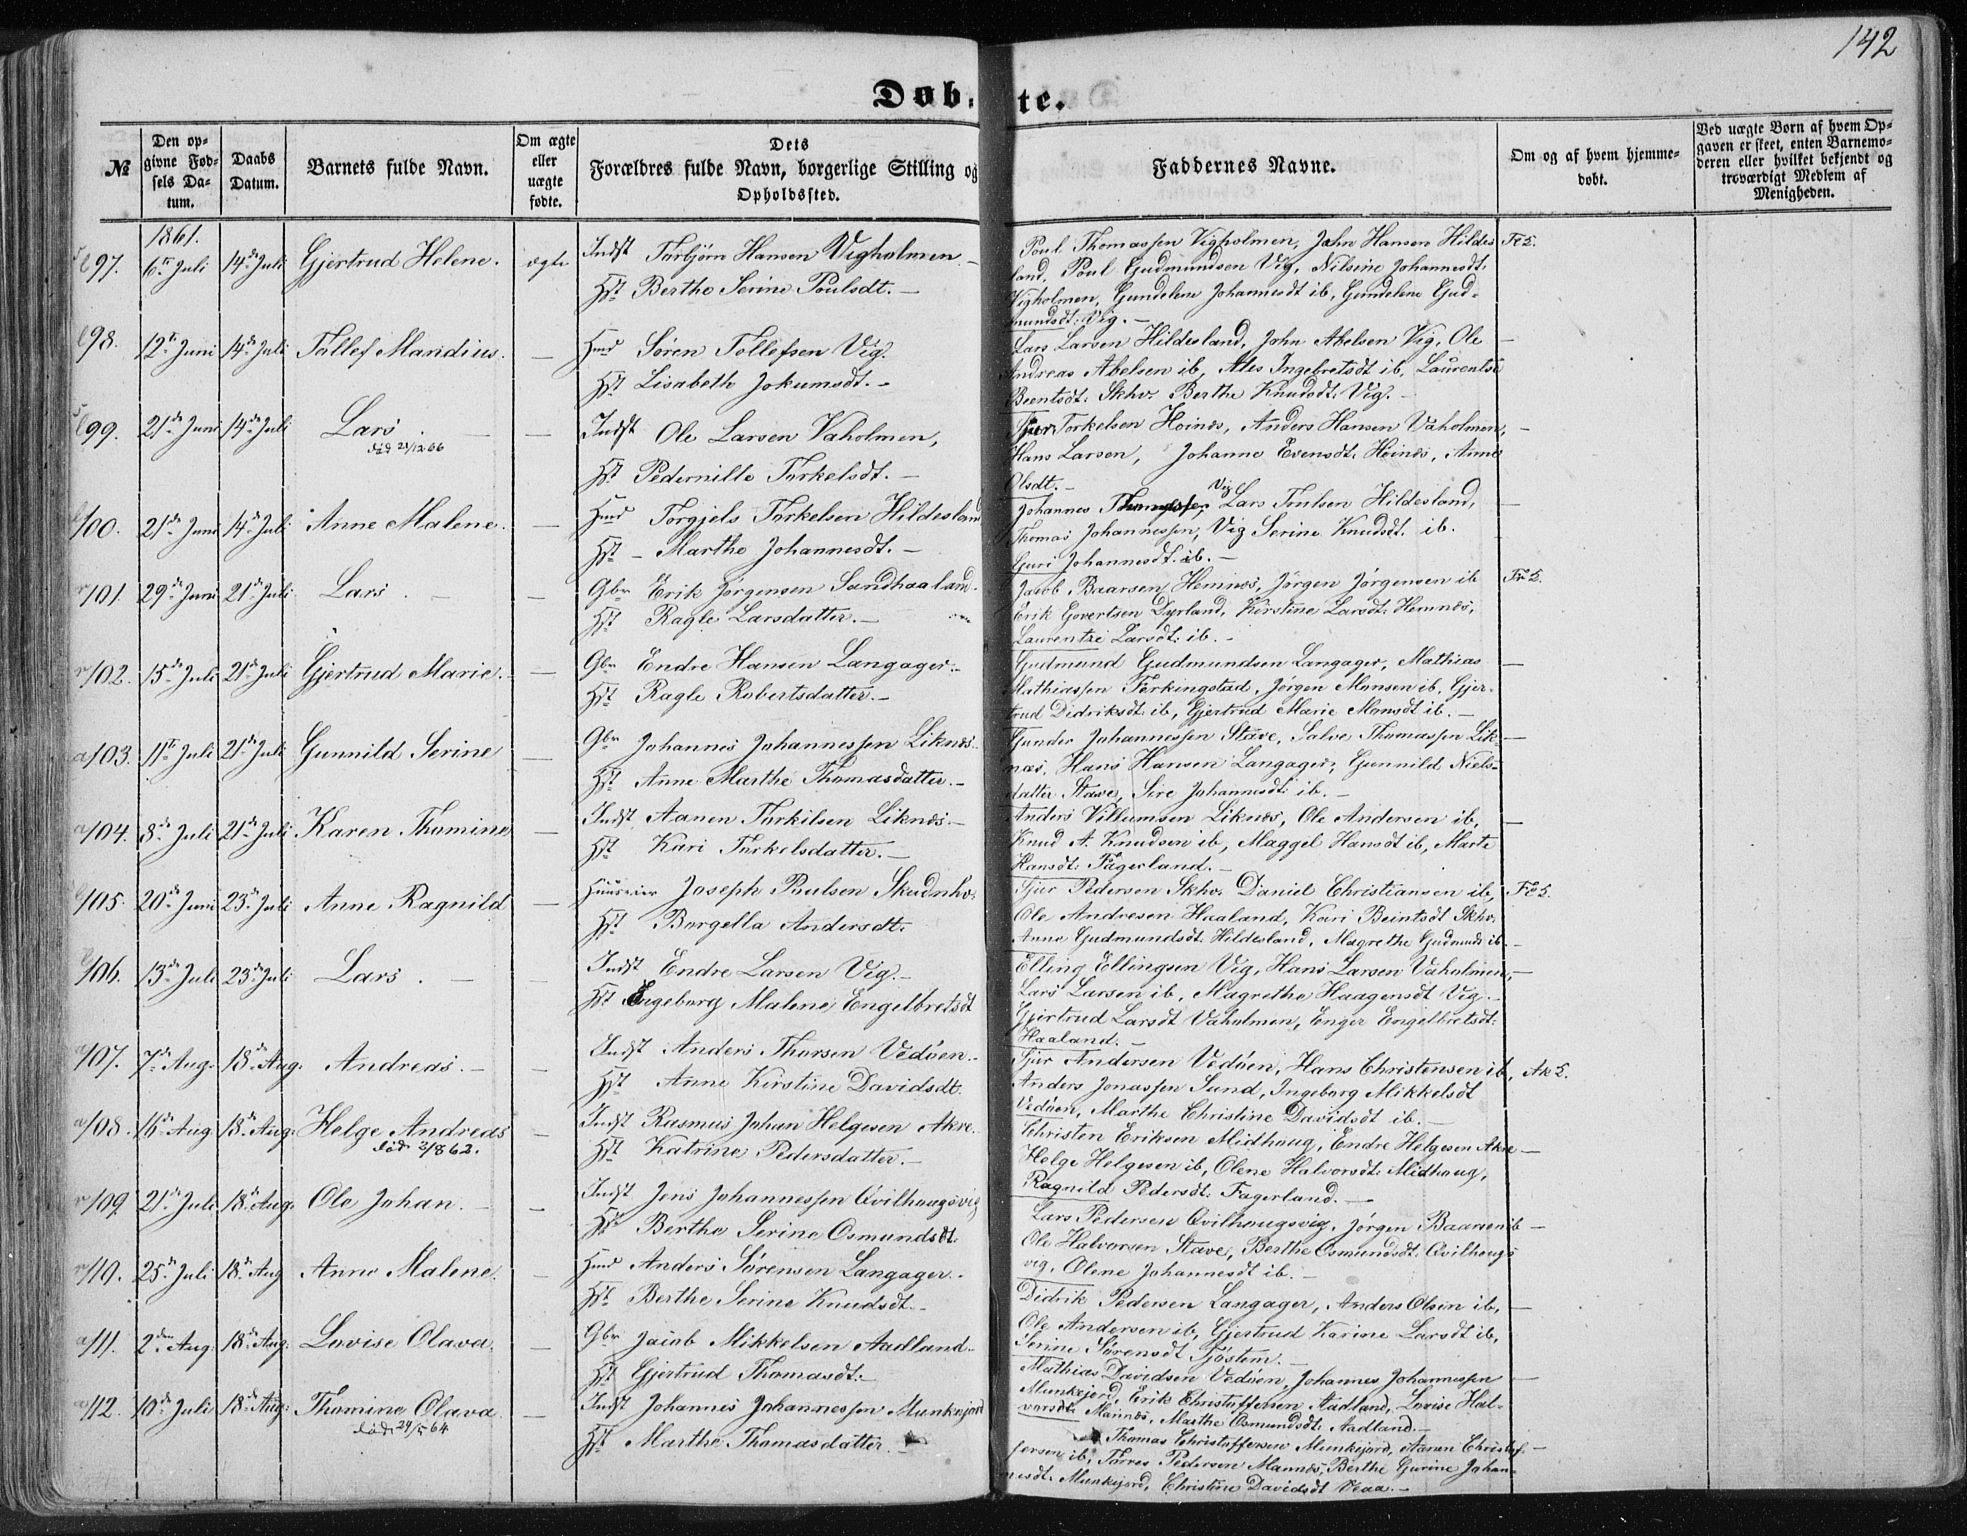 142
Døb. te.
№
Den op-
givne Fød-
sels Da-
tum.
Daabs
Datum.
Barnets fulde Navn.
Om ægte
eller
uægte
fødte.
Dets
Forældres fulde Navn, borgerlige Stilling og
Opholdssted.
Faddernes Navne.
Om og af hvem hjemme-
døbt.
Ved uægte Børn af hvem Op-
gaven er skeet, enten Barnemo-
deren eller hvilket bekjendt og
troværdigt Medlem af
Menigheden.
1861.
97. 6te Juli 14de Juli Gjertrud Helene. ægte Indst Torbjørn Hansen Vigholmen.
Hst Berthe Serine Poulsdt.
Poul Thomassen Vigholmen, John Hansen Hildes
land, Poul Gudmundsen Vig, Nilsine Johannesdt:
Vigholmen, Gundelene Johannesdt ib, Gundelene Gud-
mundsdt: Vig.
98. 12te Juni 14de Juli Tollef Maridius. — Hmd Søren Tollefsen Vig.
Hst Lisabeth Jokumsdt.
Lars Larsen Hildesland, John Abelsen Vig, Ole
Andreas Abelsen ib, Ales Ingebretsdt ib, Laurentse
Beentsdt: Skhv. Berthe Knudsdt: Vig.
99. 21de Juni 14de Juli Lars. — Indst Ole Larsen Vaholmen,
død 21/12 66
Hst Pedernille Torkelsdt.
Sjur Torkelsen Høines, Anders Hansen Vaholmen,
Hans Larsen, Johanne Evensdt: Høines, Anne
Olsdt.
100. 21de Juni 14de Juli Anne Malene. — Hmd Torgjels Torkelsen Hildesland
Hst Marthe Johannesdt.
Johannes Thomassen Vig Lars Hildesland,
Thomas Johannessen, Vig Serine Knudsdt. ib.
Guri Johannesdt. ib.
101. 29de Juni 21de Juli Lars. — Gbr Erik Jørgensen Sandhaaland.
Hst Ragle Larsdatter.
Jacob Baarsen Hemnes, Jørgen Jørgensen ib
Erik Govertsen Dyrland, Kirstine Larsdt: Hemnes,
Laurentze Larsdt: ib.
102. 15de Juli 21de Juli Gjertrud Marie. — Gbr Endre Hansen Langager.
Hst Ragle Robertsdatter.
Gudmund Gudmundsen Langager, Mathias
Mathiassen Ferkingstad, Jørgen Monsen ib, Gjer-
trud Didriksdt: ib, Gjertrud Marie Monsdt ib.
103. 11te Juli 21de Juli Gunnild Serine — Gbr Johannes Johannessen Liknes.
Hst Anne Marthe Thomasdatter.
Gunder Johannessen Stave, Salve Thomassen Lik-
nes, Hans Hansen Langager, Gunnild Niels-
datter Stave, Sire Johannesdt: ib.
104. 8de Juli 21de Juli Karen Thomine — Indst. Aanen Torkilsen Liknes.
Hst Kari Torkelsdatter.
Anders Villumsen Liknes, Ole Andersen ib,
Knud A. Knudsen ib, Maggel Hansdt ib, Marte
Hansdt: Fagerland.
105. 20de Juni 23de Juli Anne Ragnild — Huuseier Joseph Poulsen Skudnhv.
Hst Borgella Andersdt.
Sjur Pedersen Skhv. Daniel Christiansen ib,
Ole Andresen Haaland, Kari Beintsdt Skhv.
Anna Gudmundsdt: Hildesland, Magrethe Gudmunds ib.
106. 13de Juli 23de Juli Lars. — Indst Endre Larsen Vig.
Hst Engeborg Malene Engelbretsdt
Elling Ellingsen Vig, Hans Larsen Vaholmen,
Lars Larsen ib, Magrethe Haagensdt Vig.
Gjertrud Larsdt Vaholmen, Enger Engelbretsdt:
Haaland.
107. 7de Aug. 18de Aug. Andreas. — Indst Anders Thorsen Vedøen.
Hst Anne Kirstine Davidsdt.
Sjur Andersen Vedøen, Hans Christensen ib,
Anders Jonassen Sund, Ingeborg Mikkelsdt
Vedøen, Marthe Christine Davidsdt ib.
108. 16de Aug 18de Aug. Helge Andreas — Indst Rasmus Johan Helgesen Akre.
død 3/8 62.
Hst Katrine Pedersdatter.
Christen Eriksen Midhaug, Endre Helgesen Akre
Helge Helgesen ib, Olene Halvorsdt: Midhaug,
Ragnild Pedersdt: Fagerland.
109. 21de Juli 18de Aug. Ole Johan. — Indst Jens Johannessen Qvilhaugsvig
Hst Berthe Serine Osmundsdt.
Lars Pedersen Qvilhaugsvig, Jørgen Baarsen ib
Ole Halvorsen Stave, Berthe Osmundsdt: Qvilhaugs
vig, Olene Johannesdt ib.
110. 25de Juli 18de Aug Anne Malene. — Hmd Anders Sørensen Langager.
Hst Berthe Serine Knudsdt.
Didrik Pedersen Langager, Anders Olsen ib,
Ole Andersen ib, Gjertrud Karine Larsdt ib,
Serine Sørensdt Tjøstem.
111. 2den Aug. 18de Aug. Lovise Olava. — Gbr Jacob Mikkelsen Aadland.
Hst Gjertrud Thomasdt.
Mathias Davidsen Vedøen, Johannes Johannessen
Munkejord, Erik Christoffersen Aadland, Lovise Hal-
vorsdt: Mannes, Marthe Osmundsdt: Aadland.
112. 10de Juli 18de Aug: Thomine Olava. — Indst Johannes Johannessen Munkejord
død 29/5 64
Hst Marthe Thomasdatter.
Thomas Christoffersen Munkejord, Aanen Christof-
fersen ib, Torres Pedersen Mannes, Berthe Gurine Johan-
nesdt: Munkejord, Christine Davidsdt Veaa.